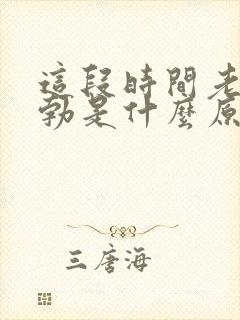 這段時間老
勃是什麼原
三唐海